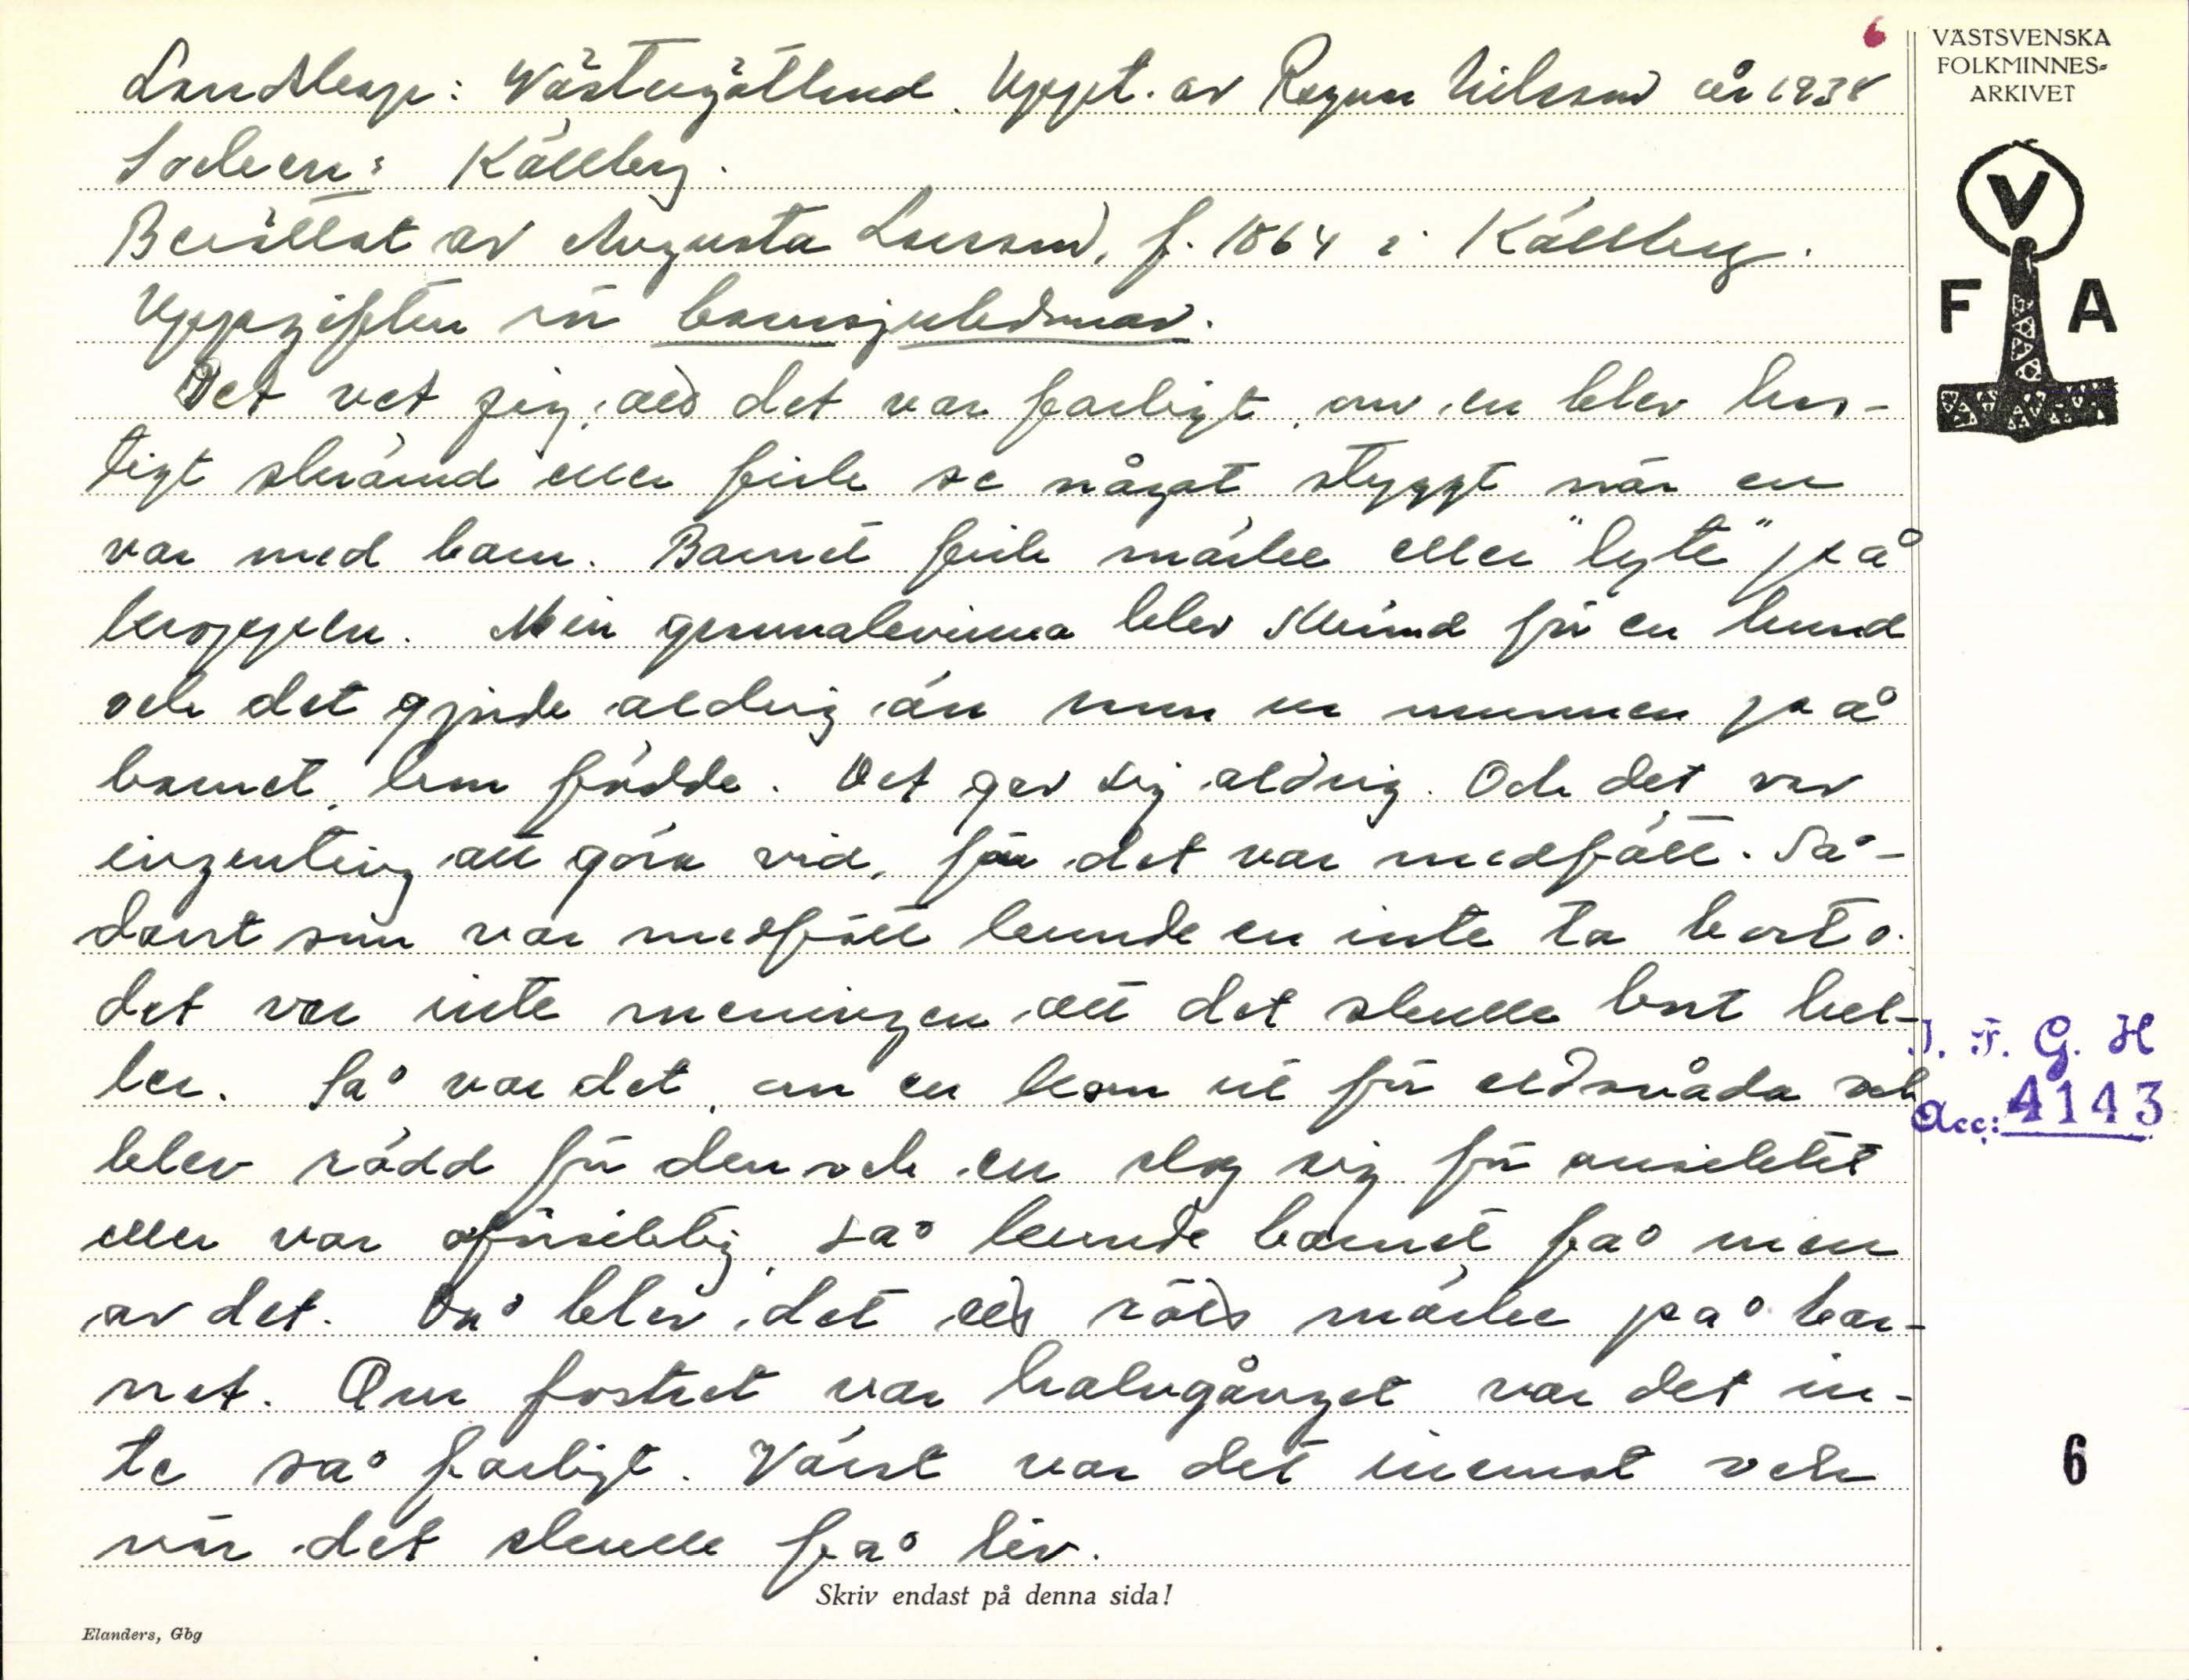 6
VÄSTSVENSKA
FOLKMINNES-
ARKIVET
V
F A
Landskap: Västergötland. Uppt. av Ragnar Nilsson år 1938
Socken: Källby.
Berättat av Augusta Larsson, f. 1864 i Källby.
Uppgiften rör barnsjukdomar.
Det vet jag, att det var farligt, om en blev has-
tigt skrämd eller fick se något styggt när en
var med barn. Barnet fick märke eller "lyte" på
kroppen. Min gummakvinna blev skrämd för en hund
och det gjorde aldrig än mun i munnen på
barnet, hon födde. Det gav sig aldrig. Och det var
ingenting att göra vid, för det var medfött. Så-
dant som var medfött kunde en inte ta bort o.
det var inte meningen att det skulle bort hel-
ler. Så var det, om en kom ut för eldsvåda och
blev rädd för den och en slog sig för ansiktet
eller var oförsiktig, så kunde barnet få men
av det. Då blev det ett rött märke på bar-
net. Om fostret var halvgånget var det in-
te så farligt. Värst var det innerst och
när det skulle få liv.
J. F. G. H
Acc: 4143
6
Skriv endast på denna sida!
Elanders, Gbg